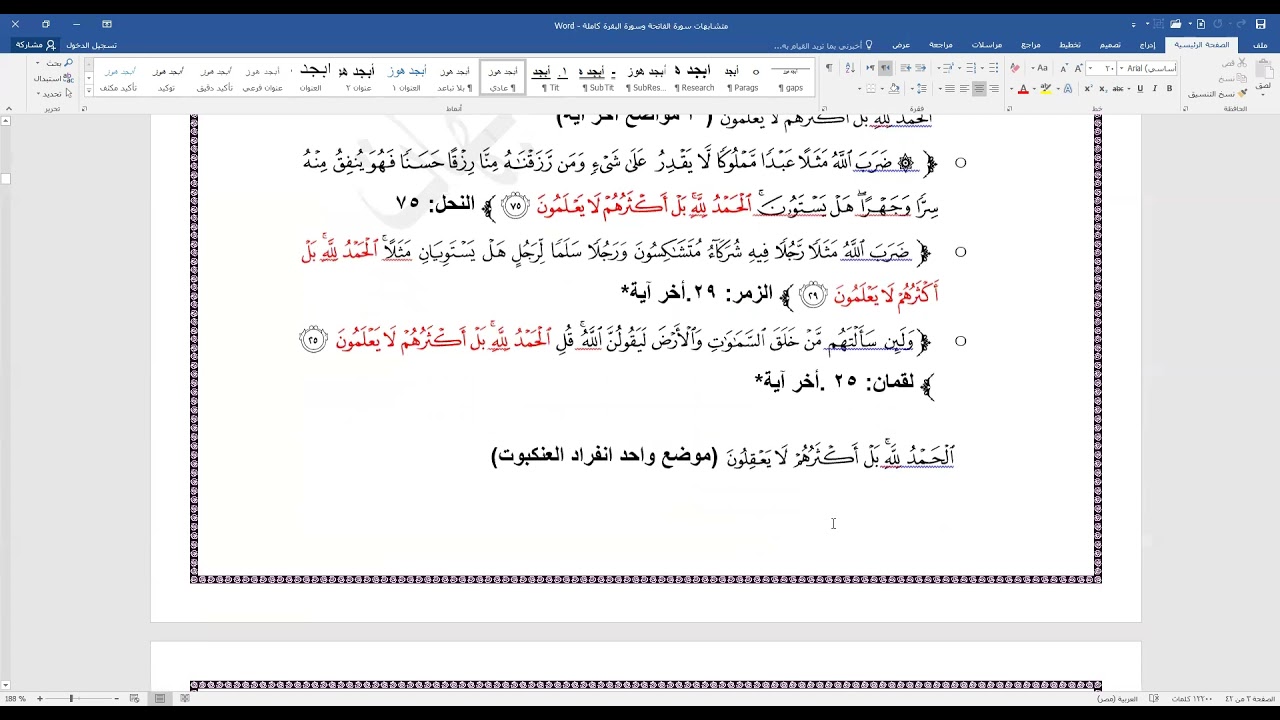 متشابهات سورة الفاتحة وسورة البقرة كاملة - Word
ملف الصفحة الرئيسية إدراج تصميم تخطيط مراجع مراسلات مراجعة عرض أخبرني بما تريد القيام به... تسجيل الدخول مشاركة
لصق قص نسخ نسخ التنسيق
Arial (أساسي) ٢٠
¶ gaps ¶ Parags ¶ Research ¶ SubRes... ¶ SubTit ¶ Tit ¶ عادي ¶ بلا تباعد العنوان ١ عنوان ٢ العنوان عنوان فرعي تأكيد دقيق توكيد تأكيد مكثف
بحث استبدال تحديد
الحافظة خط فقرة أنماط تحرير
الْحَمْدُ لِلَّهِ بَلْ أَكْثَرُهُمْ لَا يَعْلَمُونَ مواضع أخر آية)
○ ﴿ ۞ ضَرَبَ ٱللَّهُ مَثَلًا عَبْدًا مَّمْلُوكًا لَّا يَقْدِرُ عَلَىٰ شَىْءٍ وَمَن رَّزَقْنَٰهُ مِنَّا رِزْقًا حَسَنًا فَهُوَ يُنفِقُ مِنْهُ
سِرًّا وَجَهْرًا ۖ هَلْ يَسْتَوُۥنَ ۚ ٱلْحَمْدُ لِلَّهِ ۚ بَلْ أَكْثَرُهُمْ لَا يَعْلَمُونَ ٧٥ ﴾ النحل: ٧٥
○ ﴿ ضَرَبَ ٱللَّهُ مَثَلًا رَّجُلًا فِيهِ شُرَكَآءُ مُتَشَٰكِسُونَ وَرَجُلًا سَلَمًا لِّرَجُلٍ هَلْ يَسْتَوِيَانِ مَثَلًا ۚ ٱلْحَمْدُ لِلَّهِ ۚ بَلْ
أَكْثَرُهُمْ لَا يَعْلَمُونَ ٢٩ ﴾ الزمر: ٢٩.أخر آية*
○ ﴿ وَلَئِن سَأَلْتَهُم مَّنْ خَلَقَ ٱلسَّمَٰوَٰتِ وَٱلْأَرْضَ لَيَقُولُنَّ ٱللَّهُ ۚ قُلِ ٱلْحَمْدُ لِلَّهِ ۚ بَلْ أَكْثَرُهُمْ لَا يَعْلَمُونَ ٢٥
﴾ لقمان: ٢٥ .أخر آية*
ٱلْحَمْدُ لِلَّهِ ۚ بَلْ أَكْثَرُهُمْ لَا يَعْقِلُونَ (موضع واحد انفراد العنكبوت)
الصفحة ٣ من ٤٢ ١٢٢٠٠ كلمات العربية (مصر) 188 %